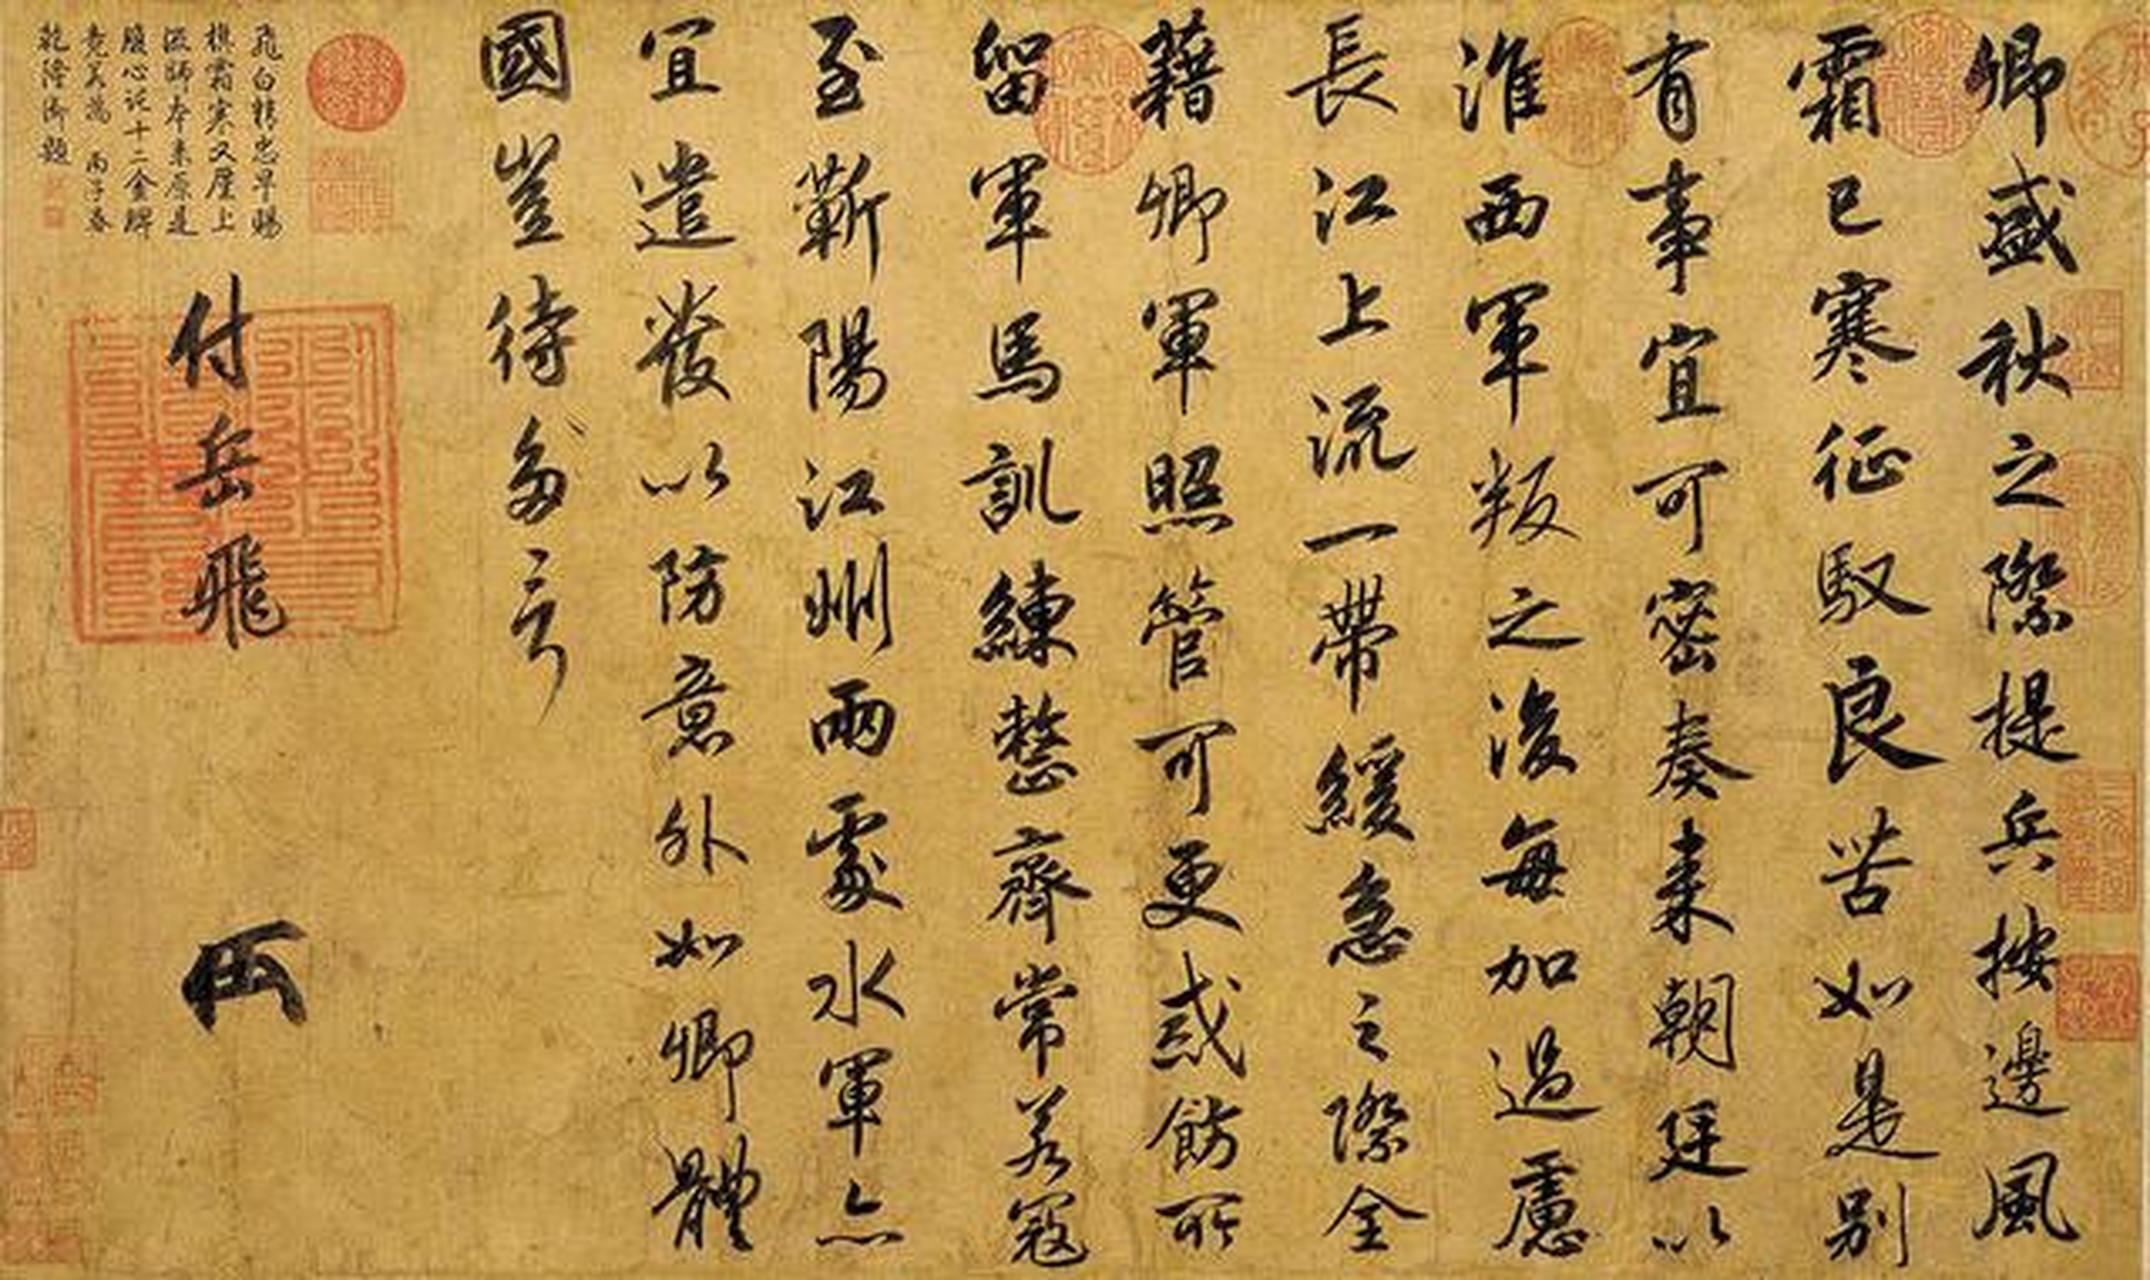 卿盛秋之際提兵按邊風
霜已寒征馭良苦如是別
有事宜可密奏来朝廷以
淮西軍叛之後每加過慮
長江上流一帶緩急之際全
藉卿軍照管可更戒飭所
留軍馬訓練整齊常若寇
至蘄陽江州兩處水軍亦
宜遣發以防意外如卿體
國豈待多言
付岳飛
飛白精忠早賜
旗霜寒又廑上
流師本来原是
腹心託十二金牌
竟奚為 丙子春
乾隆御題